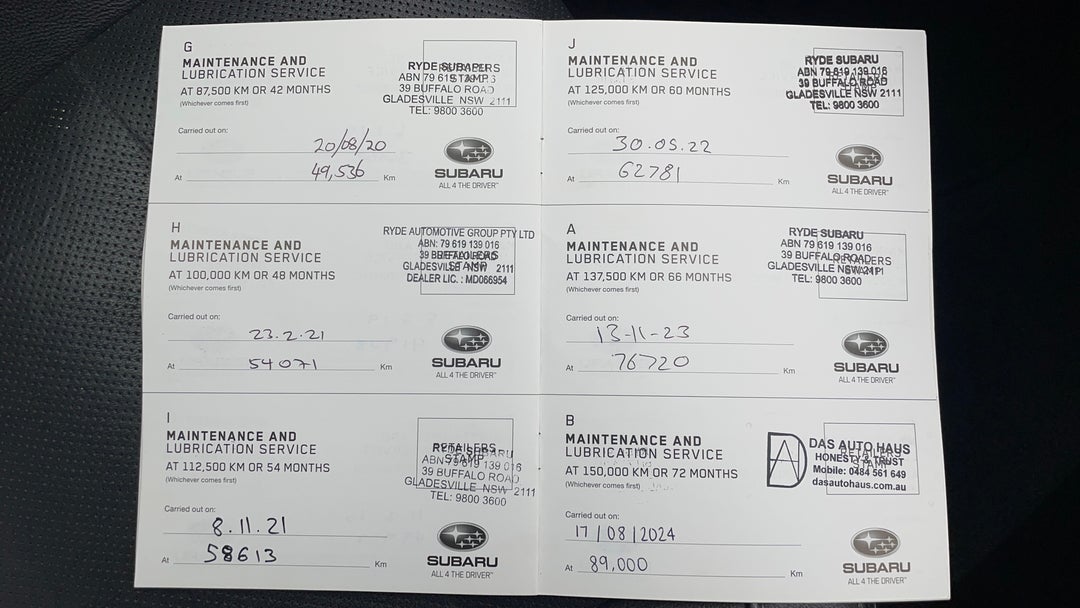 G
MAINTENANCE AND
LUBRICATION SERVICE
AT 87,500 KM OR 42 MONTHS
(Whichever comes first)
RYDE SUBARU
ABN 79 619 139 016
39 BUFFALO ROAD
GLADESVILLE NSW 2111
TEL: 9800 3600
Carried out on:
20/08/20
At 49,536 Km
SUBARU
ALL 4 THE DRIVER™
H
MAINTENANCE AND
LUBRICATION SERVICE
AT 100,000 KM OR 48 MONTHS
(Whichever comes first)
RYDE AUTOMOTIVE GROUP PTY LTD
ABN: 79 619 139 016
39 BUFFALO ROAD
GLADESVILLE NSW 2111
DEALER LIC. : MD066954
RETAILERS
STAMP
Carried out on:
23.2.21
At 54071 Km
SUBARU
ALL 4 THE DRIVER™
I
MAINTENANCE AND
LUBRICATION SERVICE
AT 112,500 KM OR 54 MONTHS
(Whichever comes first)
RETAILERS
STAMP
RYDE SUBARU
ABN 79 619 139 016
39 BUFFALO ROAD
GLADESVILLE NSW 2111
TEL: 9800 3600
Carried out on:
8.11.21
At 58613 Km
SUBARU
ALL 4 THE DRIVER™
J
MAINTENANCE AND
LUBRICATION SERVICE
AT 125,000 KM OR 60 MONTHS
(Whichever comes first)
RYDE SUBARU
ABN 79 619 139 016
39 BUFFALO ROAD
GLADESVILLE NSW 2111
TEL: 9800 3600
Carried out on:
30.05.22
At 62781 Km
SUBARU
ALL 4 THE DRIVER™
A
MAINTENANCE AND
LUBRICATION SERVICE
AT 137,500 KM OR 66 MONTHS
(Whichever comes first)
RYDE SUBARU
ABN 79 619 139 016
39 BUFFALO ROAD
GLADESVILLE NSW 2111
TEL: 9800 3600
RETAILERS
STAMP
Carried out on:
13-11-23
At 76720 Km
SUBARU
ALL 4 THE DRIVER™
B
MAINTENANCE AND
LUBRICATION SERVICE
AT 150,000 KM OR 72 MONTHS
(Whichever comes first)
DAS AUTO HAUS
HONESTY & TRUST
Mobile: 0484 561 649
dasautohaus.com.au
RETAILERS
STAMP
Carried out on:
17/08/2024
At 89,000 Km
SUBARU
ALL 4 THE DRIVER™